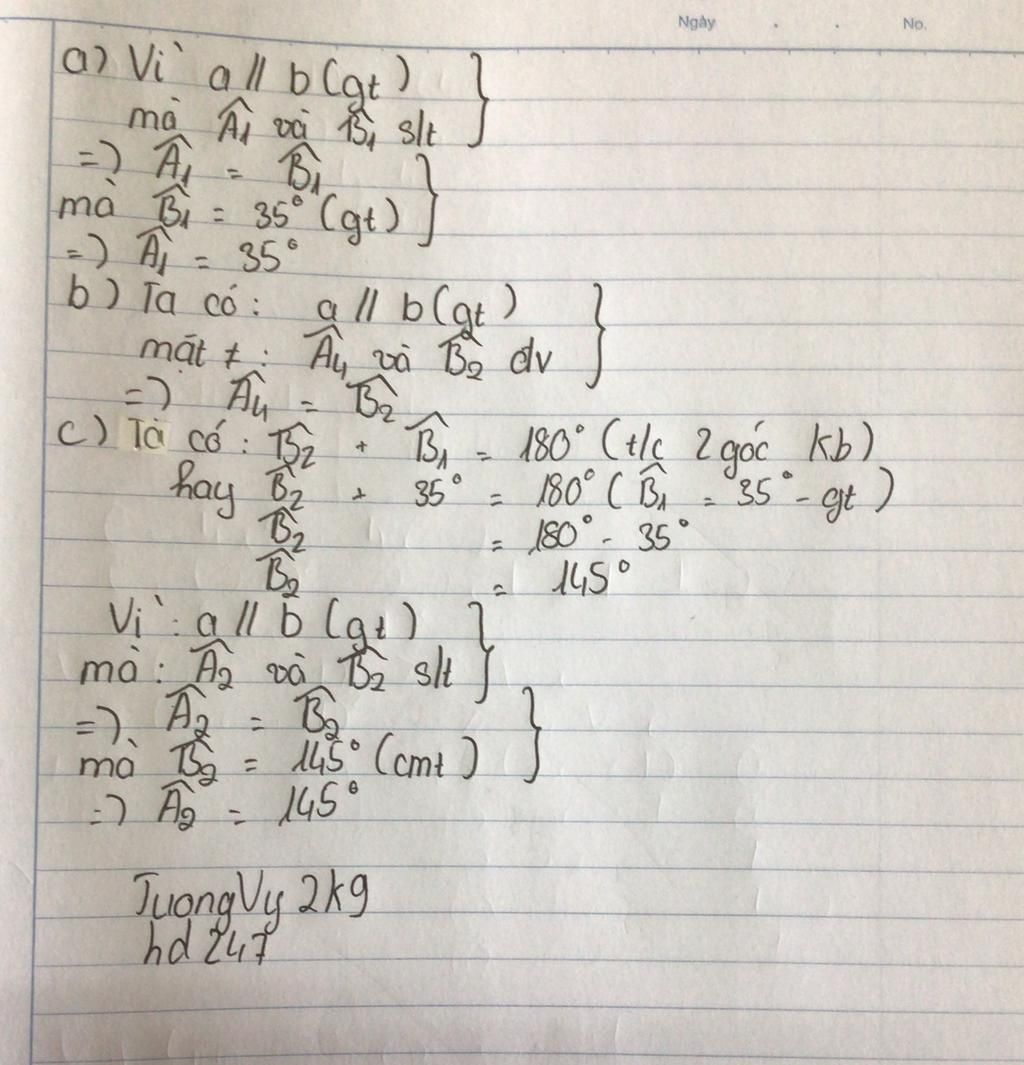 Ngày . . No.
a) Vì a // b (gt) }
mà Â1 và B̂1 slt
=> Â1 = B̂1 }
mà B̂1 = 35° (gt)
=> Â1 = 35°
b) Ta có: a // b (gt) }
mặt ≠: Â4 và B̂2 đv
=> Â4 = B̂2
c) Ta có: B̂2 + B̂1 = 180° (t/c 2 góc kb)
hay B̂2 + 35° = 180° (B̂1 = 35° - gt)
B̂2 = 180° - 35°
B̂2 = 145°
Vì: a // b (gt) }
mà: Â2 và B̂2 slt
=> Â2 = B̂2 }
mà B̂2 = 145° (cmt)
=> Â2 = 145°
TuongVy2k9
hd247